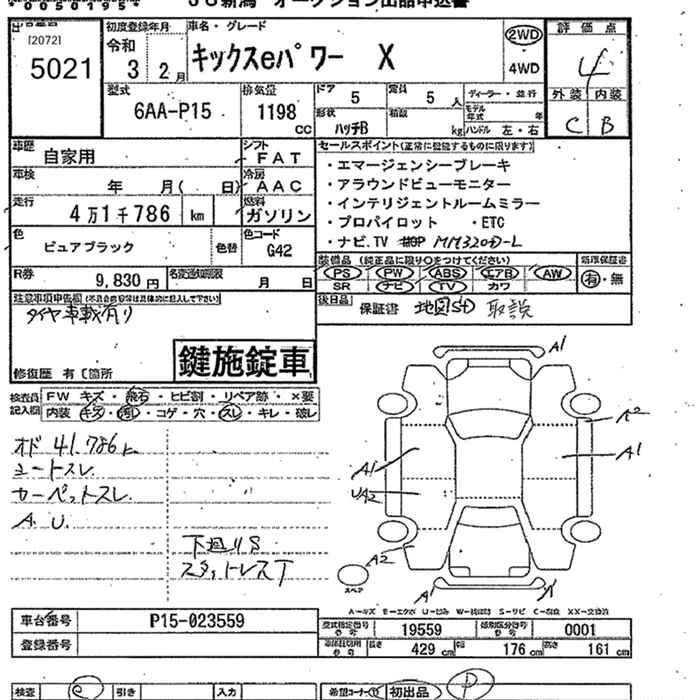 00501954
JU新潟 オークション出品申込書
[2072]
5021
初度登録年月
令和
3 2月
車名・グレード
キックスeパワー X
2WD
4WD
評価点
4
外装 内装
C B
型式
6AA-P15
排気量
1198
CC
ドア
5
定員
5人
形状
ハッチB
積載
kg
ディーラー・並行
モデル年式 年
ハンドル 左・右
車歴
自家用
シフト
FAT
車検
年 月( 日)
冷房
AAC
走行
4万1千786 km
燃料
ガソリン
色
ピュアブラック
色替
色コード
G42
セールスポイント(正常に登録するものに限ります)
・エマージェンシーブレーキ
・アラウンドビューモニター
・インテリジェントルームミラー
・プロパイロット ・ETC
・ナビ.TV MM320D-L
R券
9,830円
名変通知期限
月 日
装備品(純正品に限り○をつけてください)
PS PW ABS エアB AW
SR ナビ TV カワ
新車保証書
有・無
後日品
保証書 地図SD 取説
注意事項申告欄
タイヤ車載有り
修復歴 有〔箇所
鍵施錠車
検査員記入欄
FW キズ・飛石・ヒビ割・リペア跡・×要
内装 キズ・汚・コゲ・穴・スレ・キレ・破レ
オド 41.786km
シートスレ
カーペットスレ
A. U.
下廻りS
スタットレス下
A1
A2
A1
A1
UA2
A2
A1
スペア
A-キズ E-エクボ U-凹み W-補修跡 S-サビ C-腐食 XX-交換済
車台番号
P15-023559
登録番号
型式指定番号
19559
類別区分番号
0001
長さ 429cm 幅 176cm 高さ 161cm
検査
引き
入力
希望コーナー
初出品
P